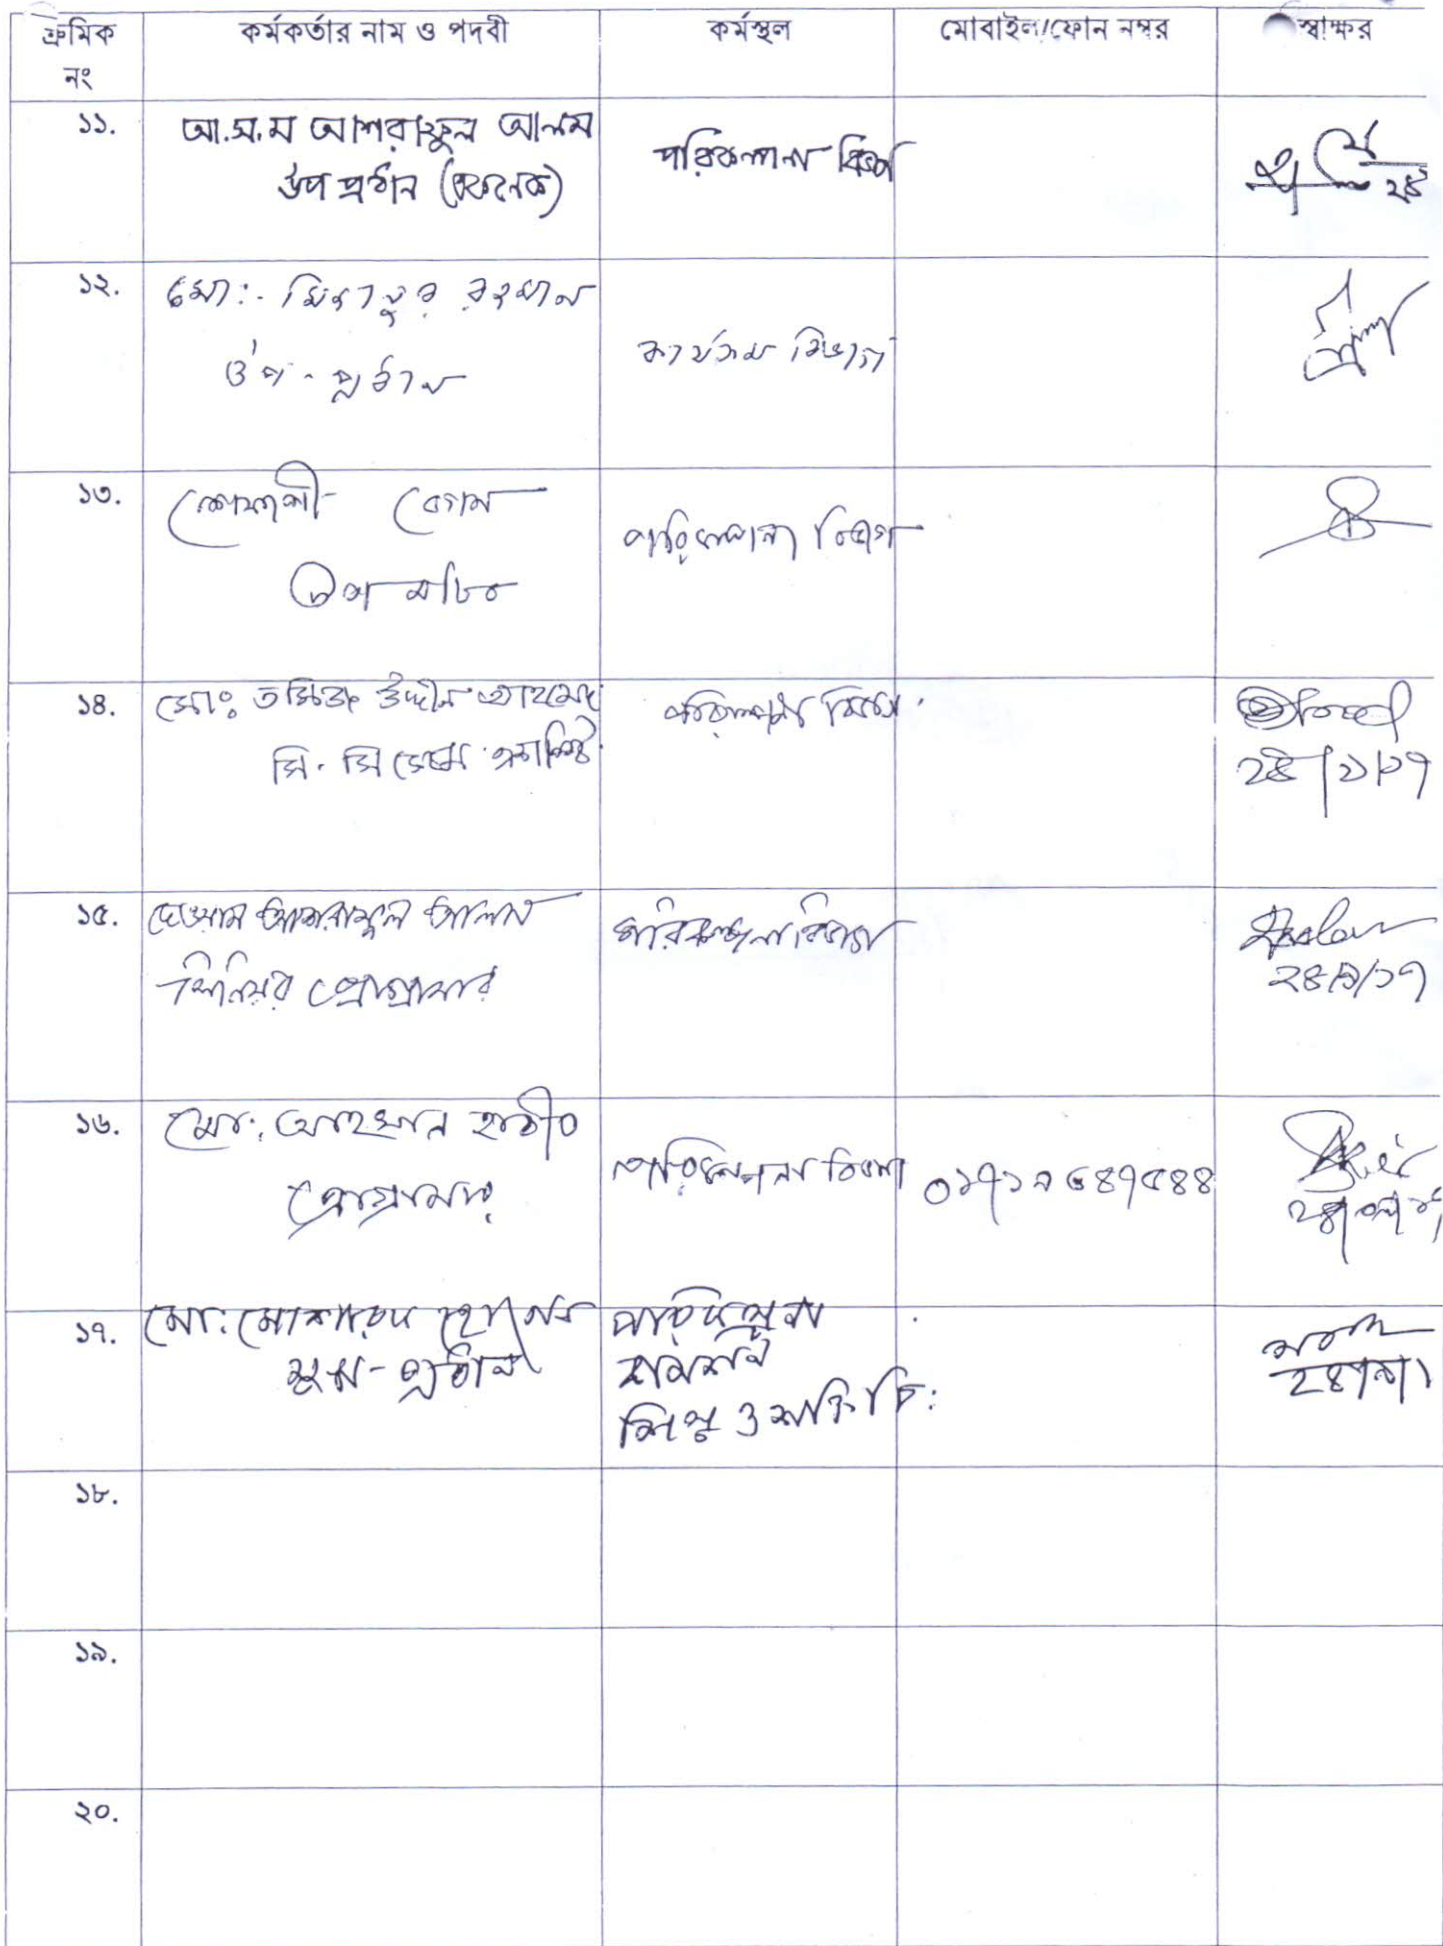 ক্রমিক নং
কর্মকর্তার নাম ও পদবী
কর্মস্থল
মোবাইল/ফোন নম্বর
স্বাক্ষর
১১.
আ.স.ম আশরাফুল আলম
উপ প্রধান
পরিকল্পনা বিভাগ
২৪
১২.
মো: মিজানুর রহমান
উপ-প্রধান
কার্যক্রম বিভাগ
১৩.
শেফালী বেগম
উপ সচিব
পরিকল্পনা বিভাগ
১৪.
মোঃ তমিজ উদ্দীন আহমেদ
সি. সিস্টেম এনালিস্ট
পরিকল্পনা বিভাগ
২৪/১/১৭
১৫.
দেওয়ান আশরাফুল আলম
সিনিয়র প্রোগ্রামার
পরিকল্পনা বিভাগ
২৪/১/১৭
১৬.
মো: আহসান হাবীব
প্রোগ্রামার
পরিকল্পনা বিভাগ
১৭.
মো: মোশাররফ হোসেন
যুগ্ম-প্রধান
পরিকল্পনা
কমিশন
শিল্প ও শক্তি বি:
১৮.
১৯.
২০.